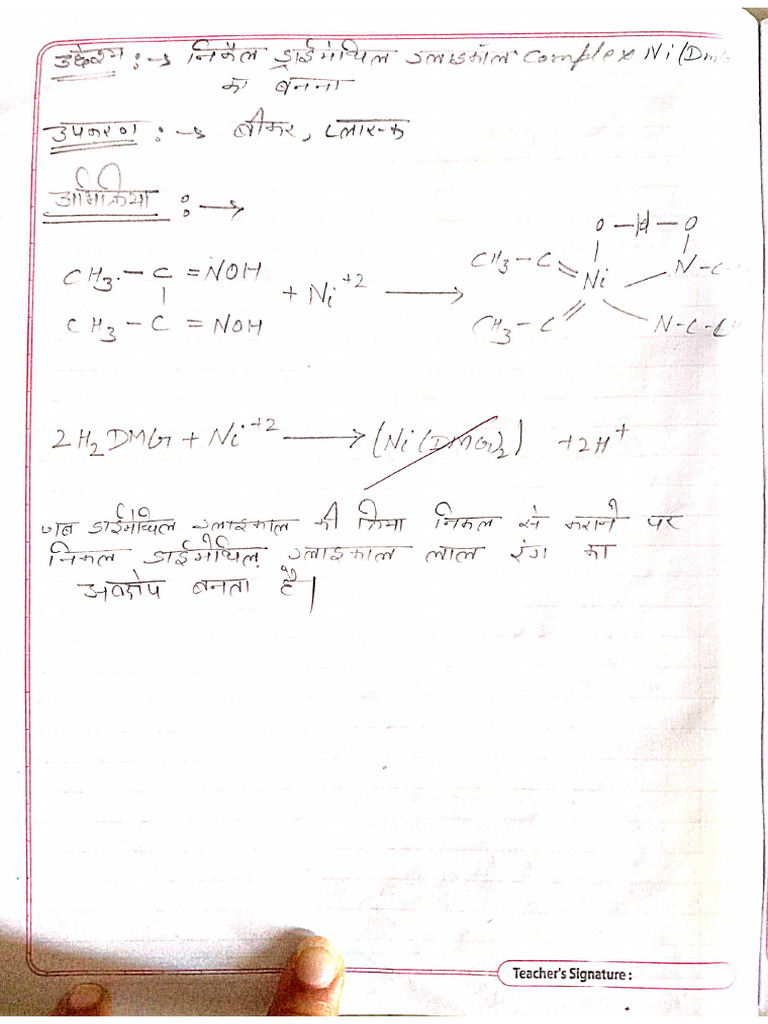 उद्देश्य :→ निकैल ड्राईमेथिल ग्लाइकॉल Complex Ni(DmG
का बनना
उपकरण :→ बीकर,
अभिक्रिया :→
O – H – O
CH3 – C = NOH
CH3 – C = Ni N – C
+ Ni+2 →
CH3 – C = NOH
CH3 – C N – C – C
2H2DMG + Ni+2 → (Ni(DMG)2) +2H+
जब डाईमेथिल ग्लाइकाल की क्रिया निकल से कराने पर
निकल डाईमेथिल ग्लाइकाल लाल रंग का
अवक्षेप बनता है|
Teacher's Signature :